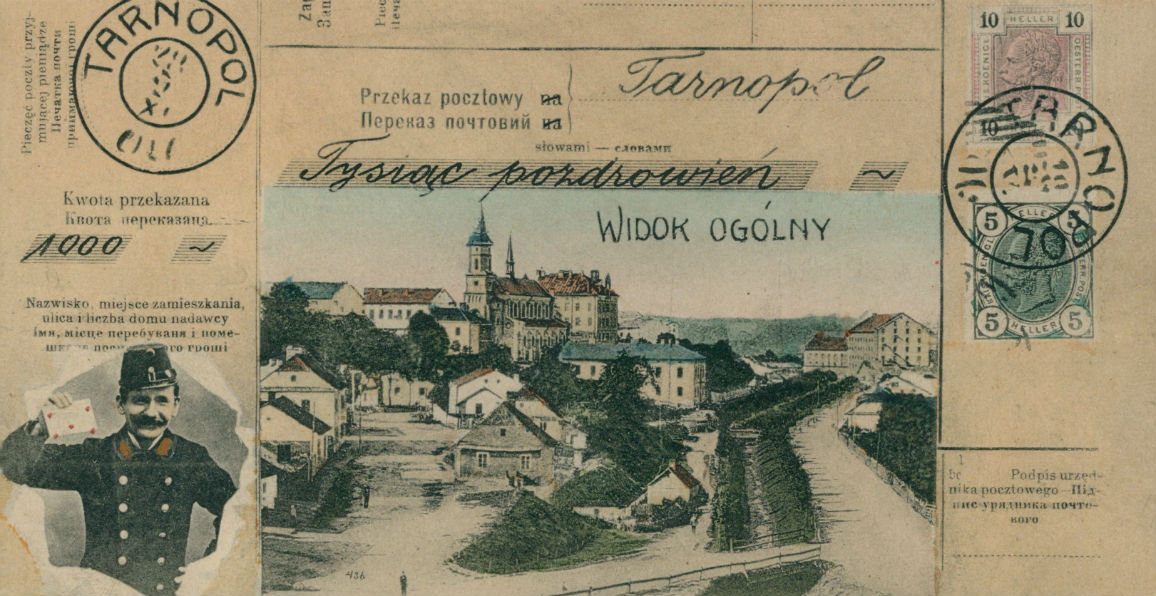 Pieczęć poczty przyj-
mującej pieniądze
Печатка почти
приимаючої гроші
TARNOPOL
Przekaz pocztowy na
Переказ почтовий на
Tarnopol
słowami — словами
Tysiąc pozdrowień ~
Kwota przekazana
Квота переказана
1000 ~
Nazwisko, miejsce zamieszkania,
ulica i liczba domu nadawcy
імя, місце перебуваня і поме-
гроші
WIDOK OGÓLNY
436
10 HELLER 10
10
TARNOPOL
5 HELLER 5
5 HELLER 5
Podpis urzęd-
nika pocztowego - Під-
пис урядника почто-
вого